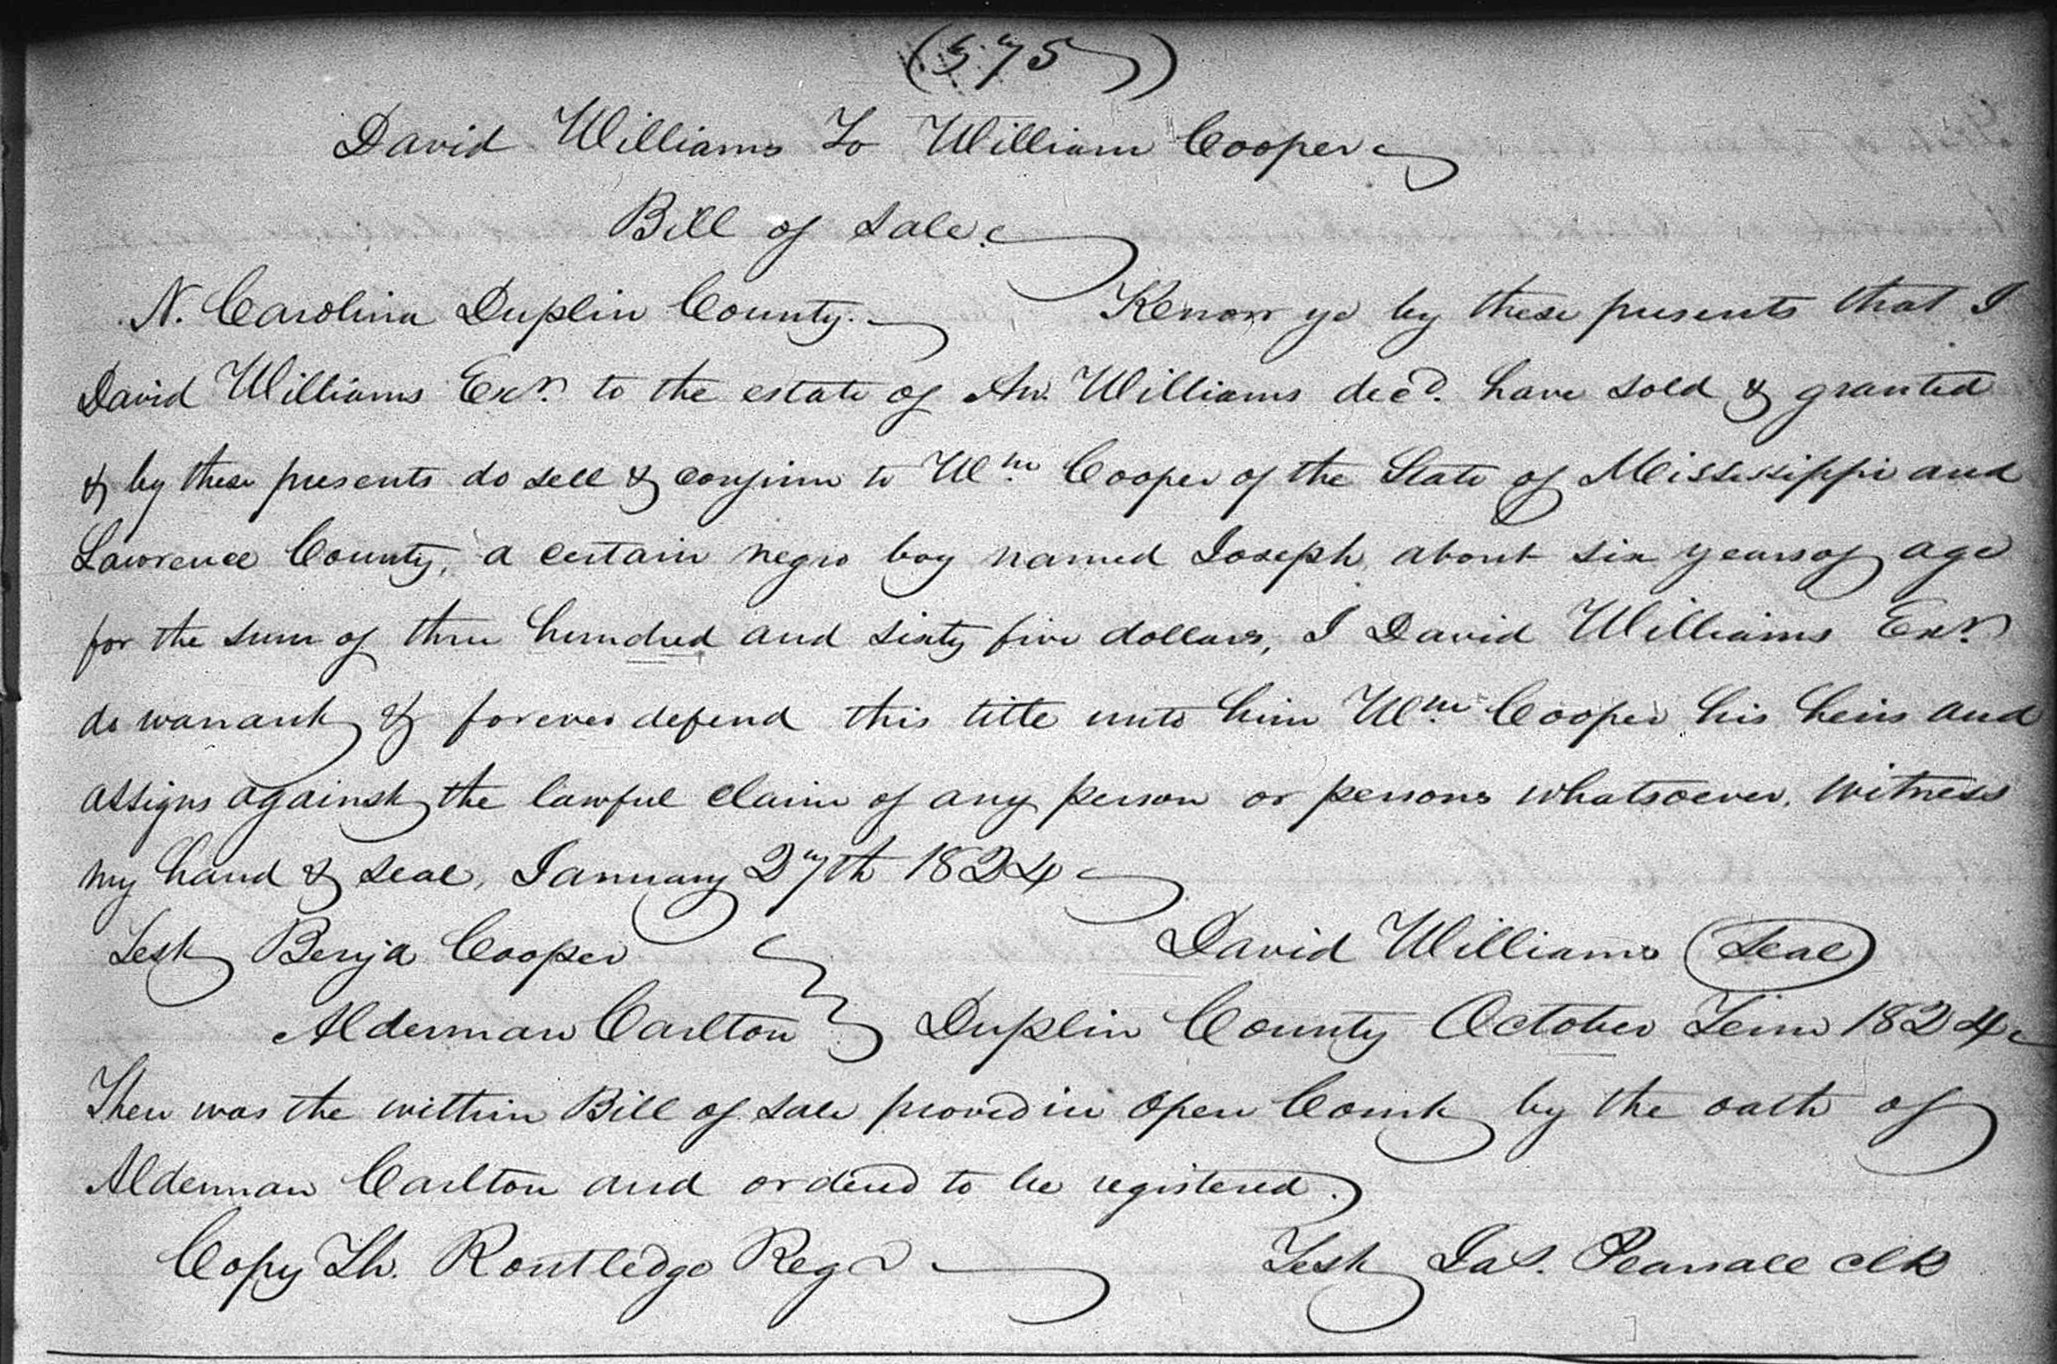 (575)
David Williams To William Cooper
Bill of Sale.
N. Carolina Duplin County. Know ye by these presents that I
David Williams Exr. to the estate of Aw. Williams decd. have sold & granted
& by these presents do sell & confirm to Wm. Cooper of the State of Mississippi and
Lawrence County, a certain negro boy named Joseph about six years of age
for the sum of three hundred and sixty five dollars, I David Williams Exr.
do warrant & forever defend this title unto him Wm. Cooper his heirs and
assigns against the lawful claim of any person or persons whatsoever. witness
my hand & seal, January 27th 1824
Test Benja Cooper David Williams (Seal)
Alderman Carlton } Duplin County October Term 1824
Then was the within Bill of Sale proved in open Court by the oath of
Alderman Carlton and ordered to be registered.
Copy Th. Routledge Regr Test Jas. Pearsall clk